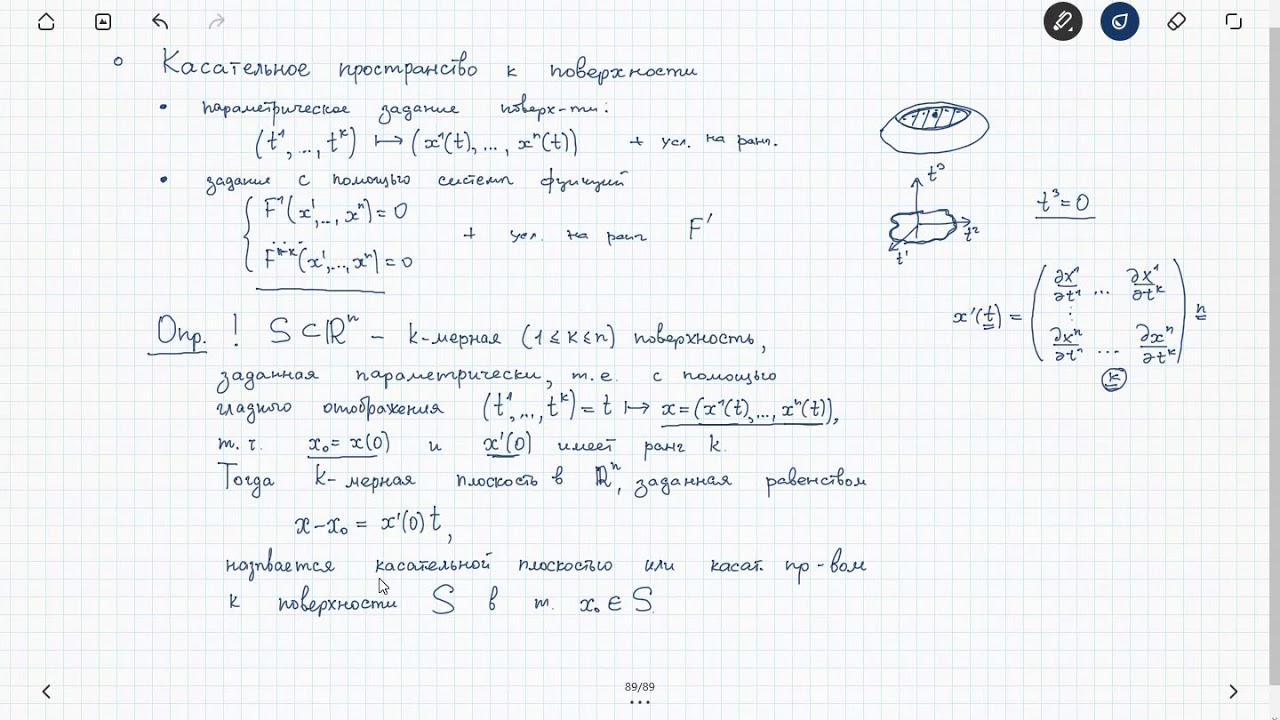 ◦ Касательное пространство к поверхности
• параметрическое задание поверх-ти:
(t¹, ..., tᵏ) ↦ (x¹(t), ..., xⁿ(t)) + усл. на ранг.
• задание с помощью системы функций
F¹(x¹, ..., xⁿ) = 0
...
Fⁿ⁻ᵏ(x¹, ..., xⁿ) = 0
+ усл. на ранг F'
Опр. ! S ⊂ ℝⁿ – k-мерная (1 ≤ k ≤ n) поверхность,
заданная параметрически, т.е. с помощью
гладкого отображения (t¹, ..., tᵏ) = t ↦ x = (x¹(t), ..., xⁿ(t)),
т.ч. x₀ = x(0) и x'(0) имеет ранг k.
Тогда k-мерная плоскость в ℝⁿ, заданная равенством
x – x₀ = x'(0) t,
называется касательной плоскостью или касат. пр-вом
к поверхности S в т. x₀ ∈ S.
t³
t²
t¹
t³ = 0
x'(t) = (∂x¹/∂t¹ ... ∂x¹/∂tᵏ
⋮
∂xⁿ/∂t¹ ... ∂xⁿ/∂tᵏ) n
k
89/89